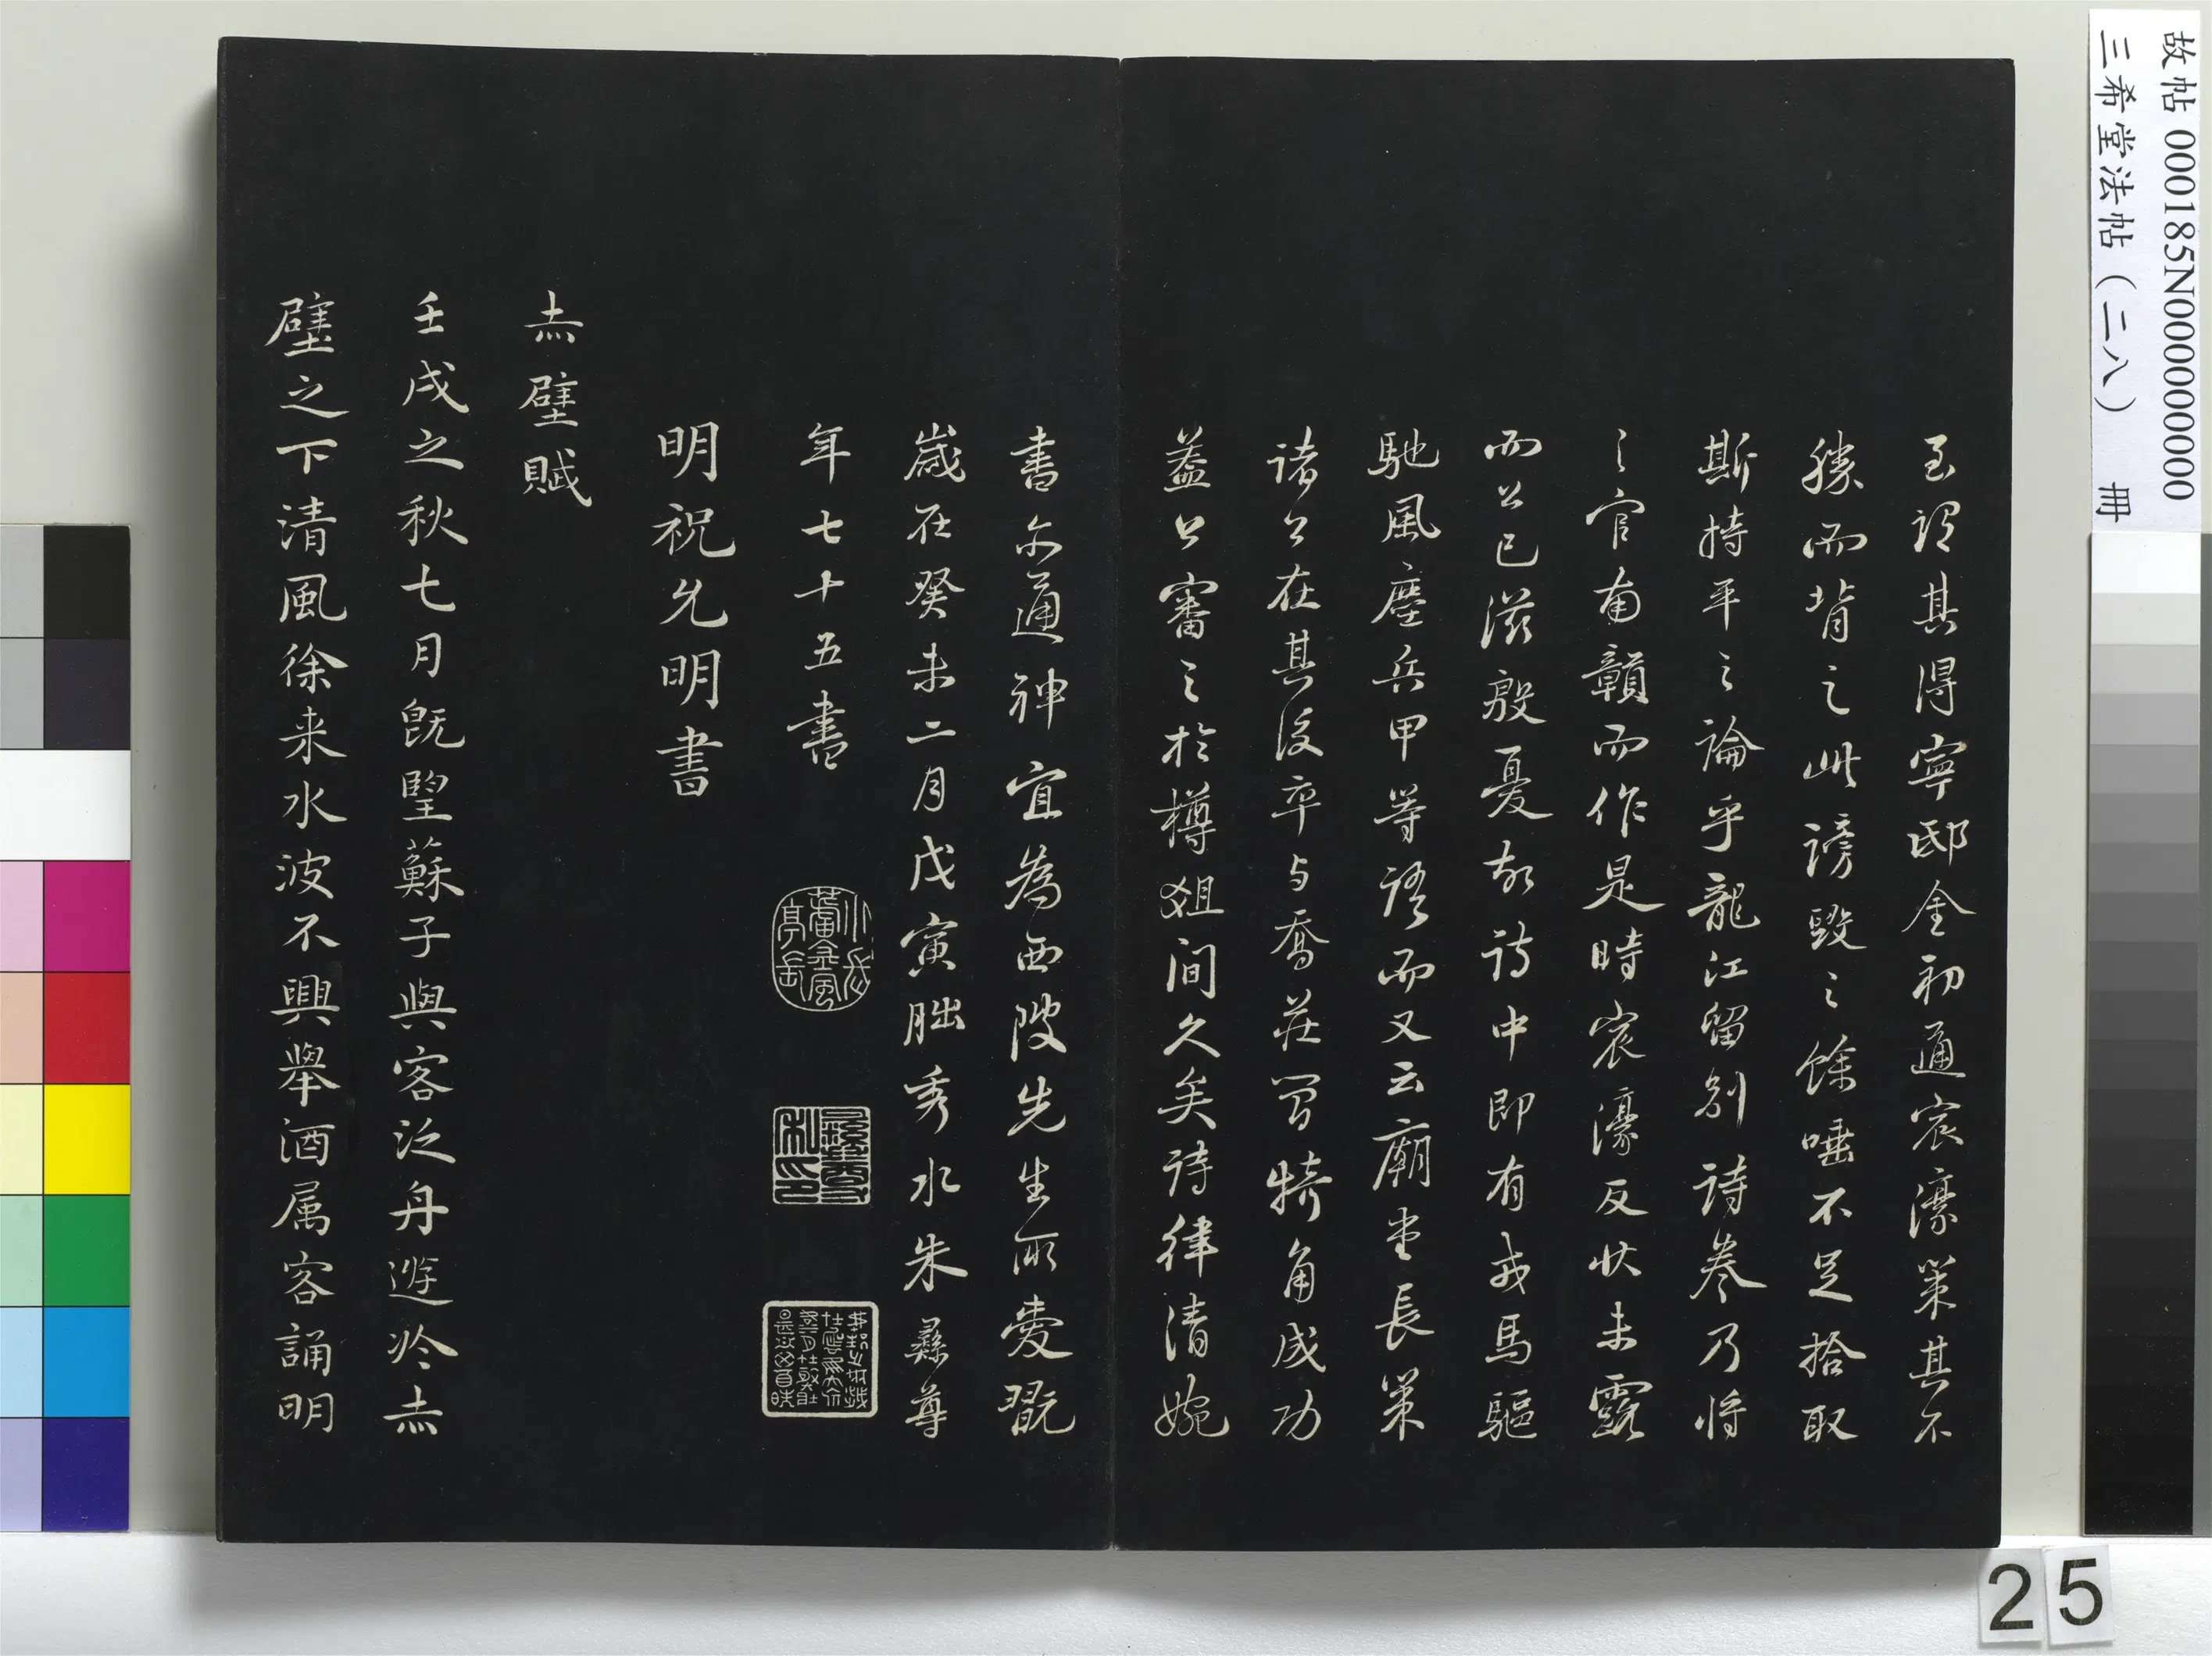 至謂其得寧邸金初通宸濠策其不
勝而背之此謗毀之餘唾不足拾取
斯持平之論乎龍江留別詩卷乃將
之官南贛而作是時宸濠反狀未露
而公已滋殷憂故詩中即有戎馬驅
馳風塵兵甲等語而又云廟堂長策
諸公在其後卒与喬莊簡犄角成功
蓋公審之於樽俎間久矣詩律清婉
書亦通神宜為西陂先生所愛翫
歲在癸未二月戊寅朏秀水朱彝尊
年七十五書
明祝允明書
赤壁賦
壬戌之秋七月既望蘇子與客泛舟遊於赤
壁之下清風徐来水波不興舉酒属客誦明
故帖 000185N000000000
三希堂法帖（二八） 冊
25